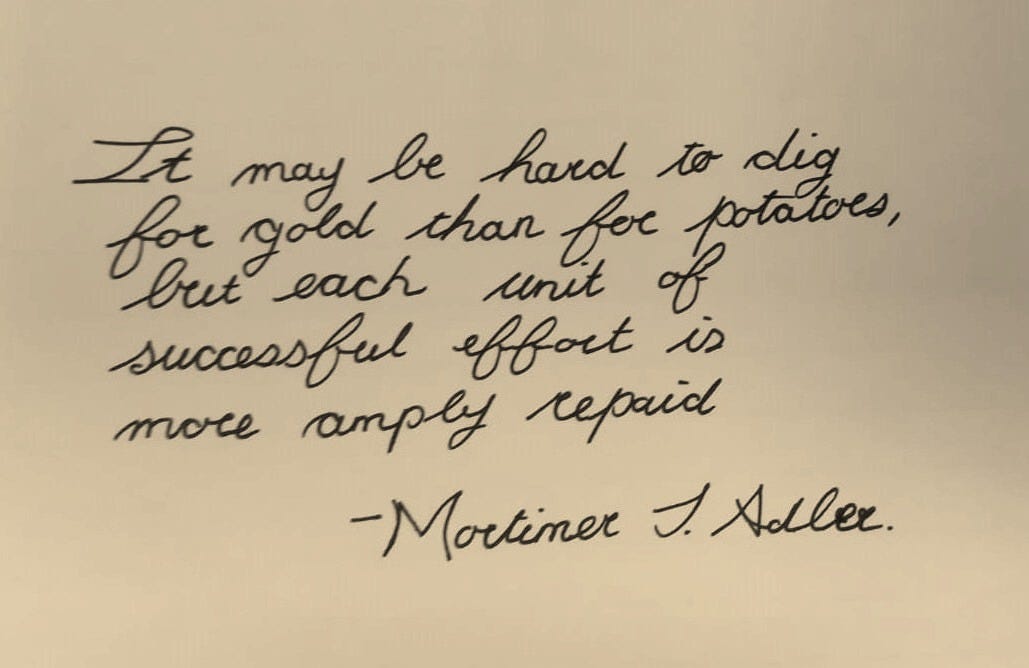 It may be hard to dig
for gold than for potatoes,
but each unit of
successful effort is
more amply repaid
-Mortimer J. Adler.